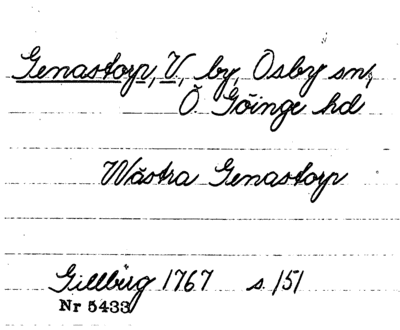 Genastorp, V, by, Osby sn,
Ö Göinge hd
Wästra Genastorp
Gillberg 1767 s. 151
Nr 5433